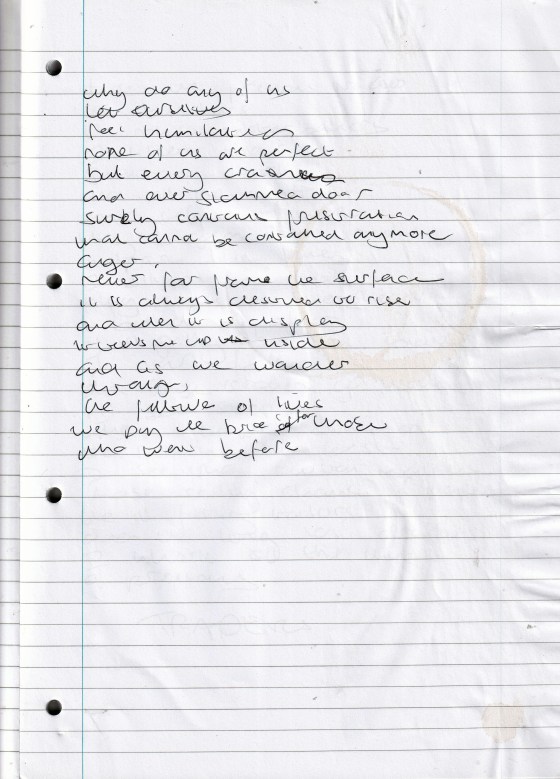 why do any of us
let ourselves
feel humiliation
none of us are perfect
but every
and over slammed door
surely contains frustration
that cannot be contained anymore
anger,
never far from the surface
it is always destined to rise
and when it is display
inside
and as we wander
through,
the of lives
we pay the price for those
who went before